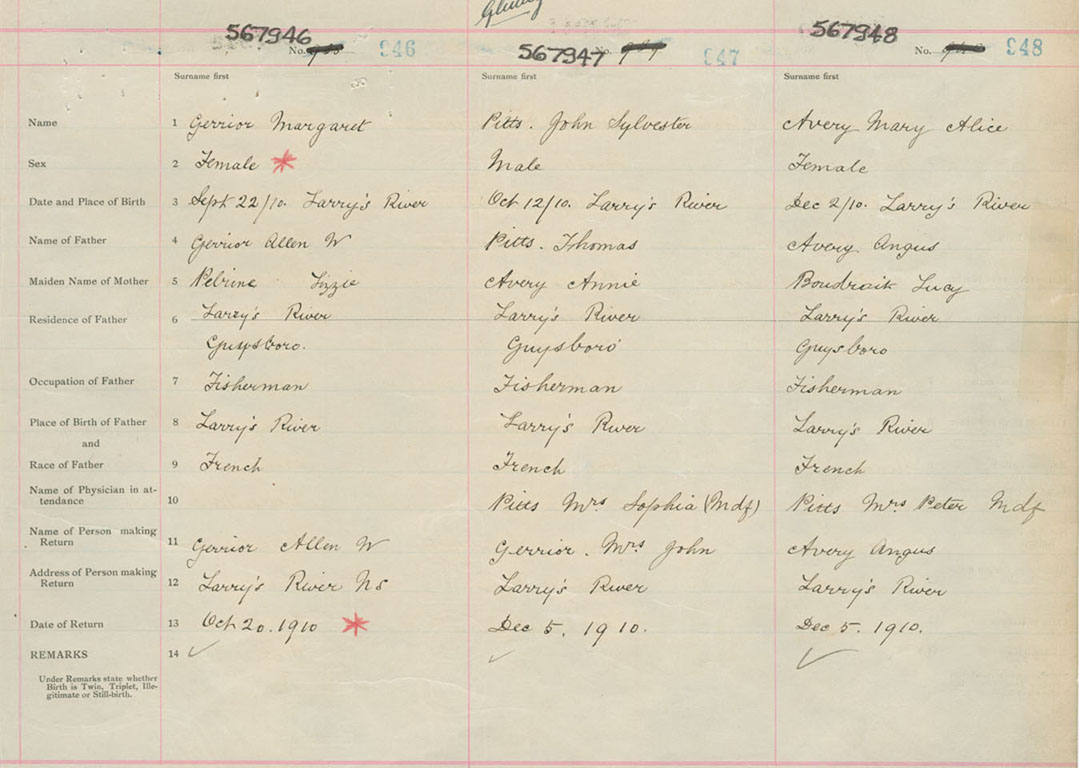 567946 No. 946
567947 No. 947
567948 No. 948
Surname first Surname first Surname first
Name 1 Gerrior Margaret Pitts. John Sylvester Avery Mary Alice
Sex 2 Female Male Female
Date and Place of Birth 3 Sept 22/10. Larry's River Oct 12/10. Larry's River Dec 2/10. Larry's River
Name of Father 4 Gerrior Allen W Pitts. Thomas Avery Angus
Maiden Name of Mother 5 Pelrine Lizzie Avery Annie Boudroit Lucy
Residence of Father 6 Larry's River Larry's River Larry's River
Guysboro. Guysboro Guysboro
Occupation of Father 7 Fisherman Fisherman Fisherman
Place of Birth of Father 8 Larry's River Larry's River Larry's River
and
Race of Father 9 French French French
Name of Physician in at-
tendance 10 Pitts Mrs Sophia (Mdf) Pitts Mrs Peter Mdf
Name of Person making
Return 11 Gerrior Allen W Gerrior. Mrs John Avery Angus
Address of Person making
Return 12 Larry's River Ns Larry's River Larry's River
Date of Return 13 Oct 20. 1910 Dec 5. 1910. Dec 5. 1910.
REMARKS 14
Under Remarks state whether
Birth is Twin, Triplet, Ille-
gitimate or Still-birth.